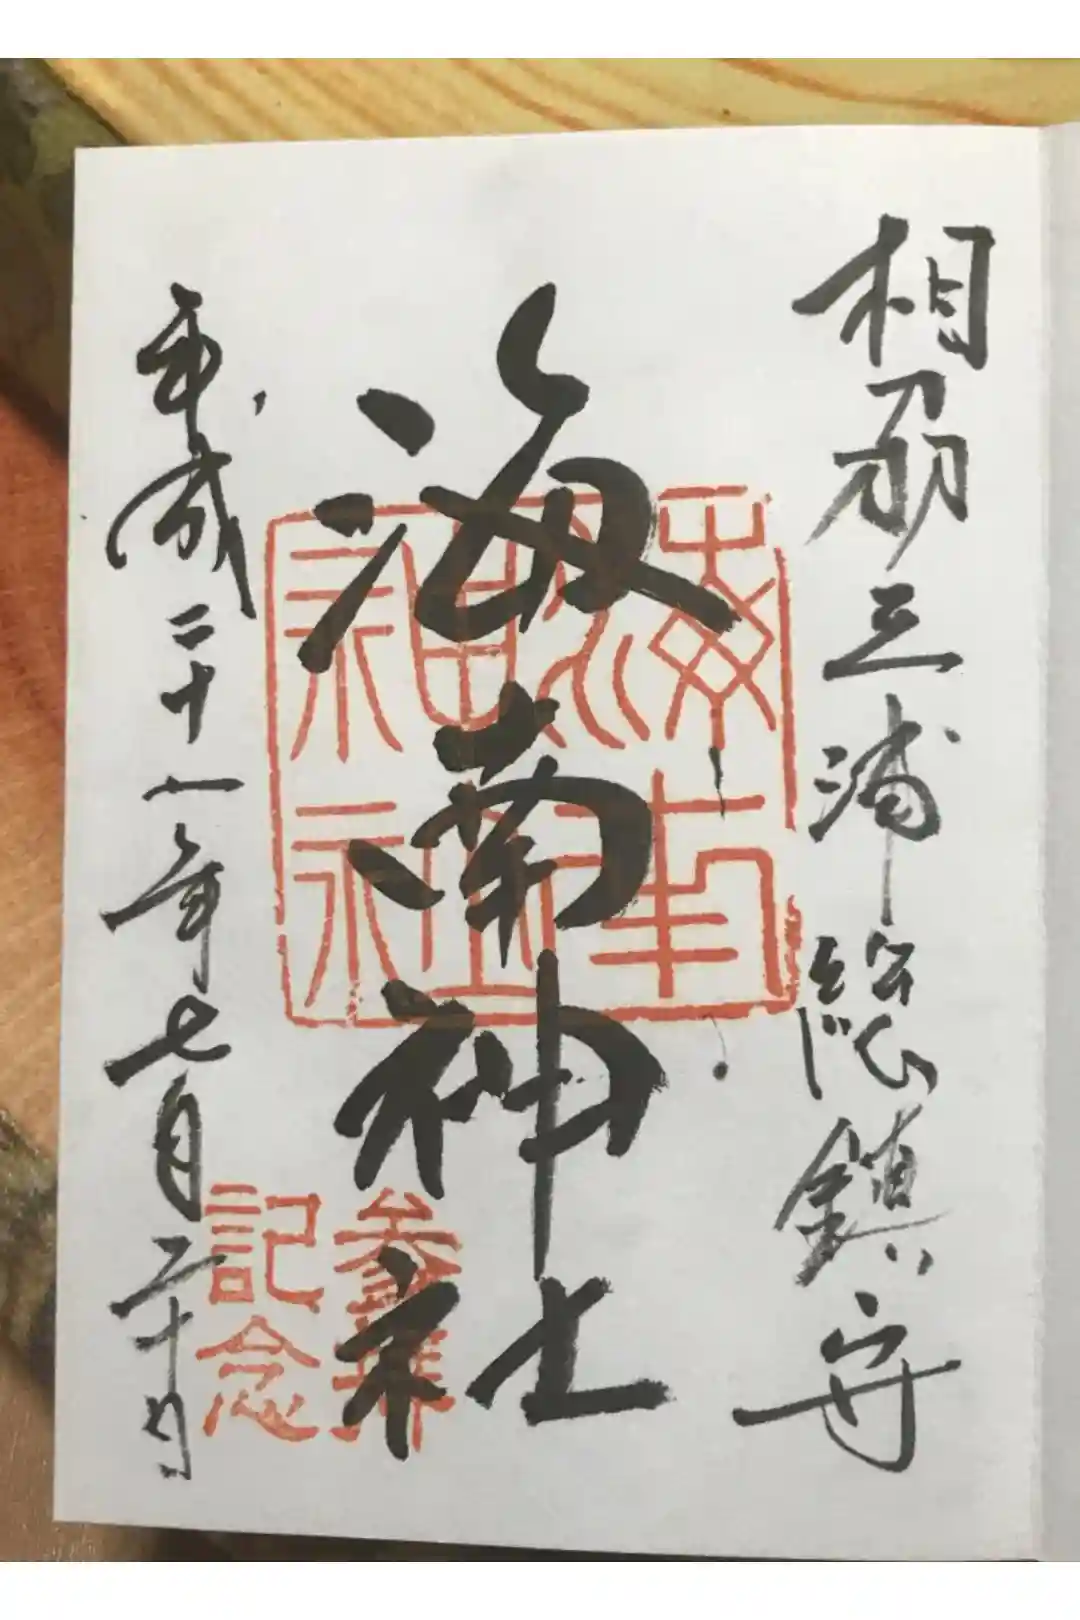 相刕三浦総鎮守
海南神社
平成二十一年七月二十日
参拝
記念